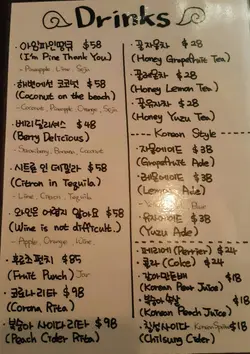 Drinks
· 아임파인땡큐 $58
(I'm Pine Thank You)
- Pineapple, Lime, Soju
· 해변에선 코코넛 $58
(Coconut on the beach)
- Coconut, Pineapple, Orange, Soju
· 베리딜리셔스 $48
(Berry Delicious)
- Strawberry, Banana, Coconut
· 시트론 인 데낄라 $58
(Citron in Tequila)
- Lime, Lemon, Tequila
· 와인은 어렵지 않아요 $58
(Wine is not difficult.)
- Apple, Orange, Wine
· 후르츠 펀치 $85
(Fruit Punch) Jar
· 코로나리타 $98
(Corona Rita)
· 복숭아 사이다 리타 $98
(Peach Cider Rita)
· 꿀자몽차 $28
(Honey Grapefruit Tea)
· 꿀레몬차 $28
(Honey Lemon Tea)
· 꿀유자차 $28
(Honey Yuzu Tea)
Korean Style
· 자몽에이드 $38
(Grapefruit Ade)
· 레몬에이드 $38
(Lemon Ade)
Blue
· 유자에이드 $38
(Yuzu Ade)
· 페리에 (Perrier) $24
· 콜라 (Coke) $24
· 갈아만든배 $18
(Korean Pear Juice)
$18
(Korean Peach Juice)
· 칠성사이다 $18
(Chilsung Cider)